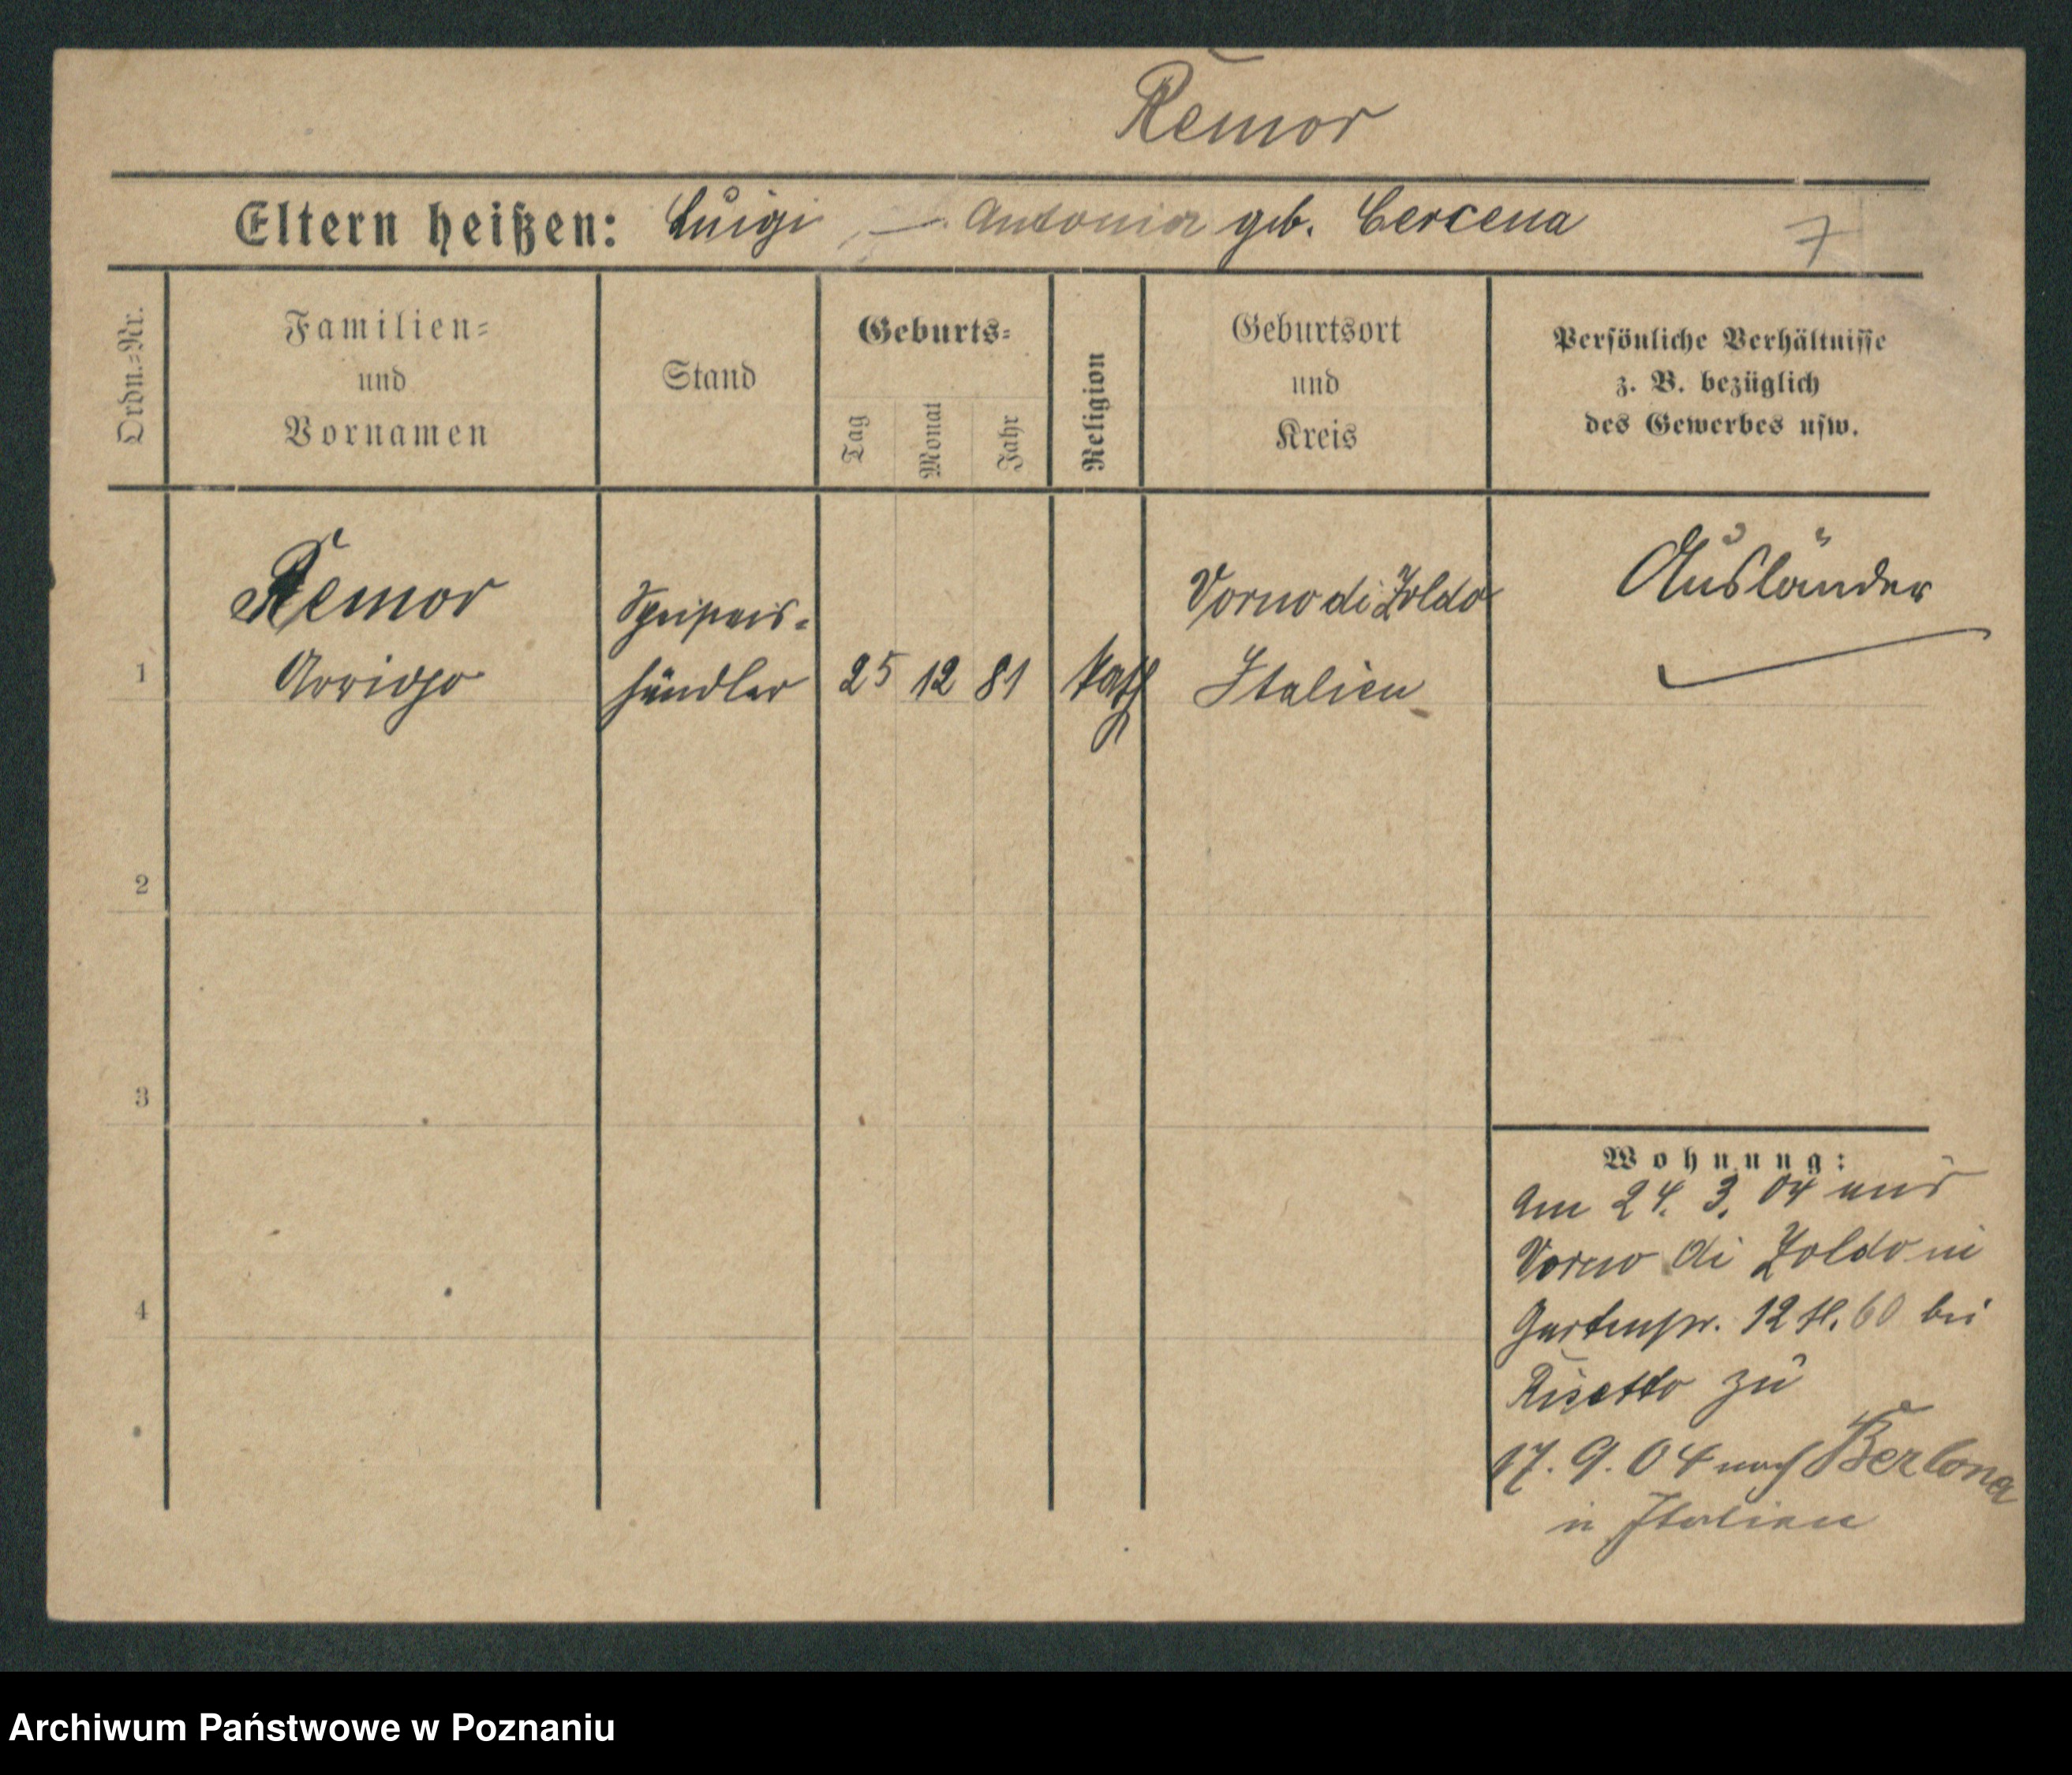 Remor
Eltern heißen: Luigi — Antonia geb. Cercena
7
Ordn.=Nr.
Familien=
und
Vornamen
Stand
Geburts=
Tag
Monat
Jahr
Religion
Geburtsort
und
Kreis
Persönliche Verhältnisse
z. B. bezüglich
des Gewerbes usw.
1
Remor
Arrigo
Speiseeis-
händler
25 12 81
kath
Vorno di Zoldo
Italien
Ausländer
2
3
4
Wohnung:
Am 24. 3. 04 aus
Vorno di Zoldo in
Gartenstr. 12 II. 60 bei
Risetto zu
17. 9. 04 nach Berlona
in Italien
Archiwum Państwowe w Poznaniu